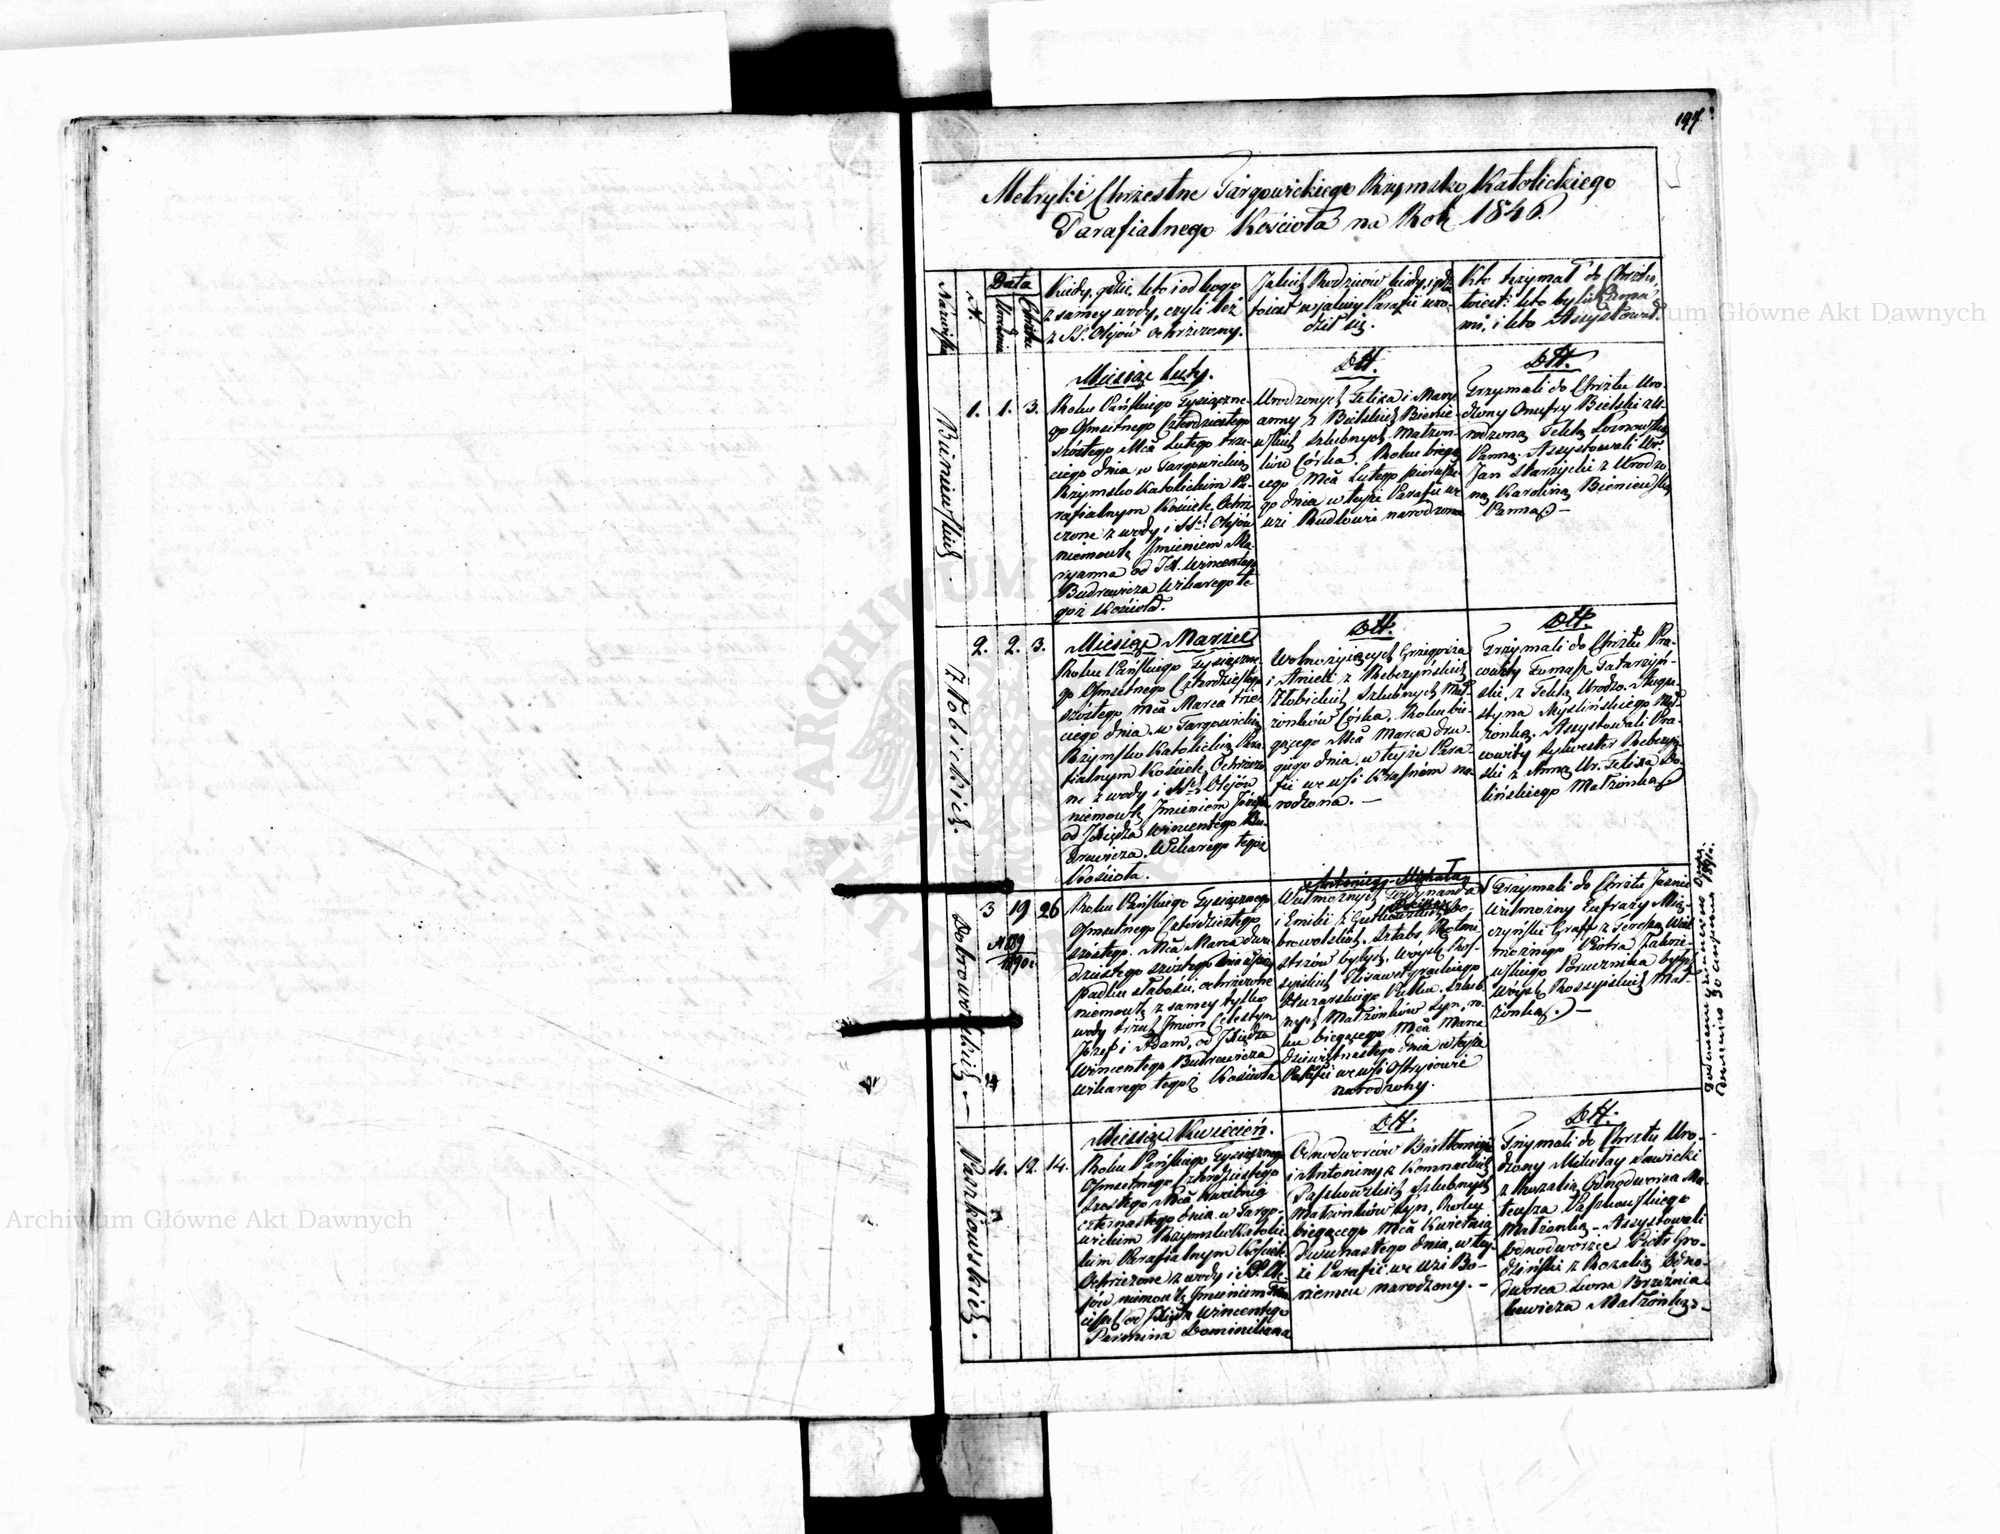 197.
Metryki Chrzestne Targowickiego Rzymsko Katolickiego
Parafialnego Kościoła na Rok 1846
Nazwiska
N.
Data
Urodzenia
Chrztu
Kiedy, gdzie, kto i od kogo
z samey wody, czyli też
z SS. Olejów ochrzczony.
Jakich Rodziców kiedy i gdzie
to iest w jakiey Parafii uro-
dził się.
Kto trzymał do Chrztu,
to iest: kto byli Kuma-
mi, i kto Assystował.
Biniewskich.
1. 1. 3.
Miesiąc Luty.
Roku Pańskiego Tysiączne-
go Osmsetnego Czterdziestego
szóstego Mca Lutego trze-
ciego dnia w Targowickim
Rzymsko Katolickim Pa-
rafialnym Kościele, Ochrz-
czone z wody i SS. Olejów
niemowlę Jmieniem Ma-
ryanna od JX. Wincentego
Budrewicza Wikarego te-
goż Kościoła.
DH.
Urodzonych Felixa i Mary-
anny z Bielskich Bienie-
wskich szlubnych Małżon-
ków Córka. Roku bieżą-
cego Mca Lutego pierwsze-
go dnia w teyże Parafii we
wsi narodzona
DH.
Trzymali do Chrztu Uro-
dzony Onufry Bielski z U-
rodzoną Teklą
Panną. Assystowali Ur.
Jan Skarzycki z Urodzo-
ną Karoliną Bieniewską
Panną. -
Złobickich.
2. 2. 3.
Miesiąc Marzec
Roku Pańskiego Tysiączne-
go Osmsetnego Czterdziestego
szóstego Mca Marca trze-
ciego dnia w Targowickim
Rzymsko Katolickim Para-
fialnym Kościele, Ochrzczo-
ne z wody i SS. Olejów
niemowlę Jmieniem Józefa
od JXiędza Wincentego Bu-
drewicza Wikarego tegoż
Kościoła.
DH.
Wolnożyjących Grzegorza
i Anieli z Rebczyńskich
Złobickich Szlubnych Mał-
żonków Córka. Roku bie-
żącego Mca Marca dru-
giego dnia w teyże Para-
fii we wsi Krasném na-
rodzona. -
DH.
Trzymali do Chrztu Pra-
cowity Tomasz Tatarzyń-
ski, z Teklą Urodzo. Augu-
styna Myślińskiego Mał-
żonką. Assystowali Pra-
cowity Sylwester Rebczyń-
ski z Anną Ur. Felixa Do-
lińskiego Małżonką.
Dobrowolskich -
3 19 26
N 889
1890 r.
Roku Pańskiego Tysiącznego
Osmsetnego Czterdziestego
szóstego. Mca Marca dwu-
dziestego szóstego dnia w przy-
padku słabości, ochrzczone
niemowlę z samey tylko
wody trzech Jmion Celestyn
Józef i Adam, od JXiędza
Wincentego Budrewicza
Wikarego tegoż Kościoła
Antoniego-Michała
Wielmożnych Ferdynanda
i Emilii z Gutkowskich Do-
browolskich, Sztabs Rotmi-
strzów byłych Wóysk Ros-
syiskich Elisawetgradzkiego
Huzarskiego Pułku. szlub-
nych Małżonków syn, ro-
ku bieżącego Mca Marca
dziewiętnastego dnia w teyże
Parafii we wsi Ostrzeiowie
narodzony.
Trzymali do Chrztu Jaśnie
Wielmożny Eufrazy Mią-
czyński Graff z Teressą Wiel-
możnego Piotra Zakrze-
wskiego Porucznika byłych
Wóysk Rossyiskich Mał-
żonką. -
Paszkowskich.
4. 12. 14.
Miesiąc Kwiecień.
Roku Pańskiego Tysiącznego
Osmsetnego Czterdziestego
szóstego Mca Kwietnia
czternastego dnia w Targo-
wickim Rzymsko Katolic-
kim Parafialnym Kościele
Ochrzczone z wody i SS. Ole-
jów niemowlę Jmieniem
od JXiędza Wincentego
Dominikana
DH.
Odnodworców Bartłomieja
i Antoniny z Komnackich
Paszkowskich Szlubnych
Małżonków syn, Roku
bieżącego Mca Kwietnia
dwunastego dnia, w tey-
że Parafii we wsi Bo-
niemeu narodzony. -
DH.
Trzymali do Chrztu Uro-
dzony Mikołay Sawicki
z Rozalią Odnodworca Ma-
teusza Paszkowskiego
Małżonką - Assystowali
Odnodworzec Piotr Gro-
dziński z Rozalią Odno-
dworca Leona Brzeźnia-
kiewicza Małżonką -
Archiwum Główne Akt Dawnych
Archiwum Główne Akt Dawnych
ARCHIWUM